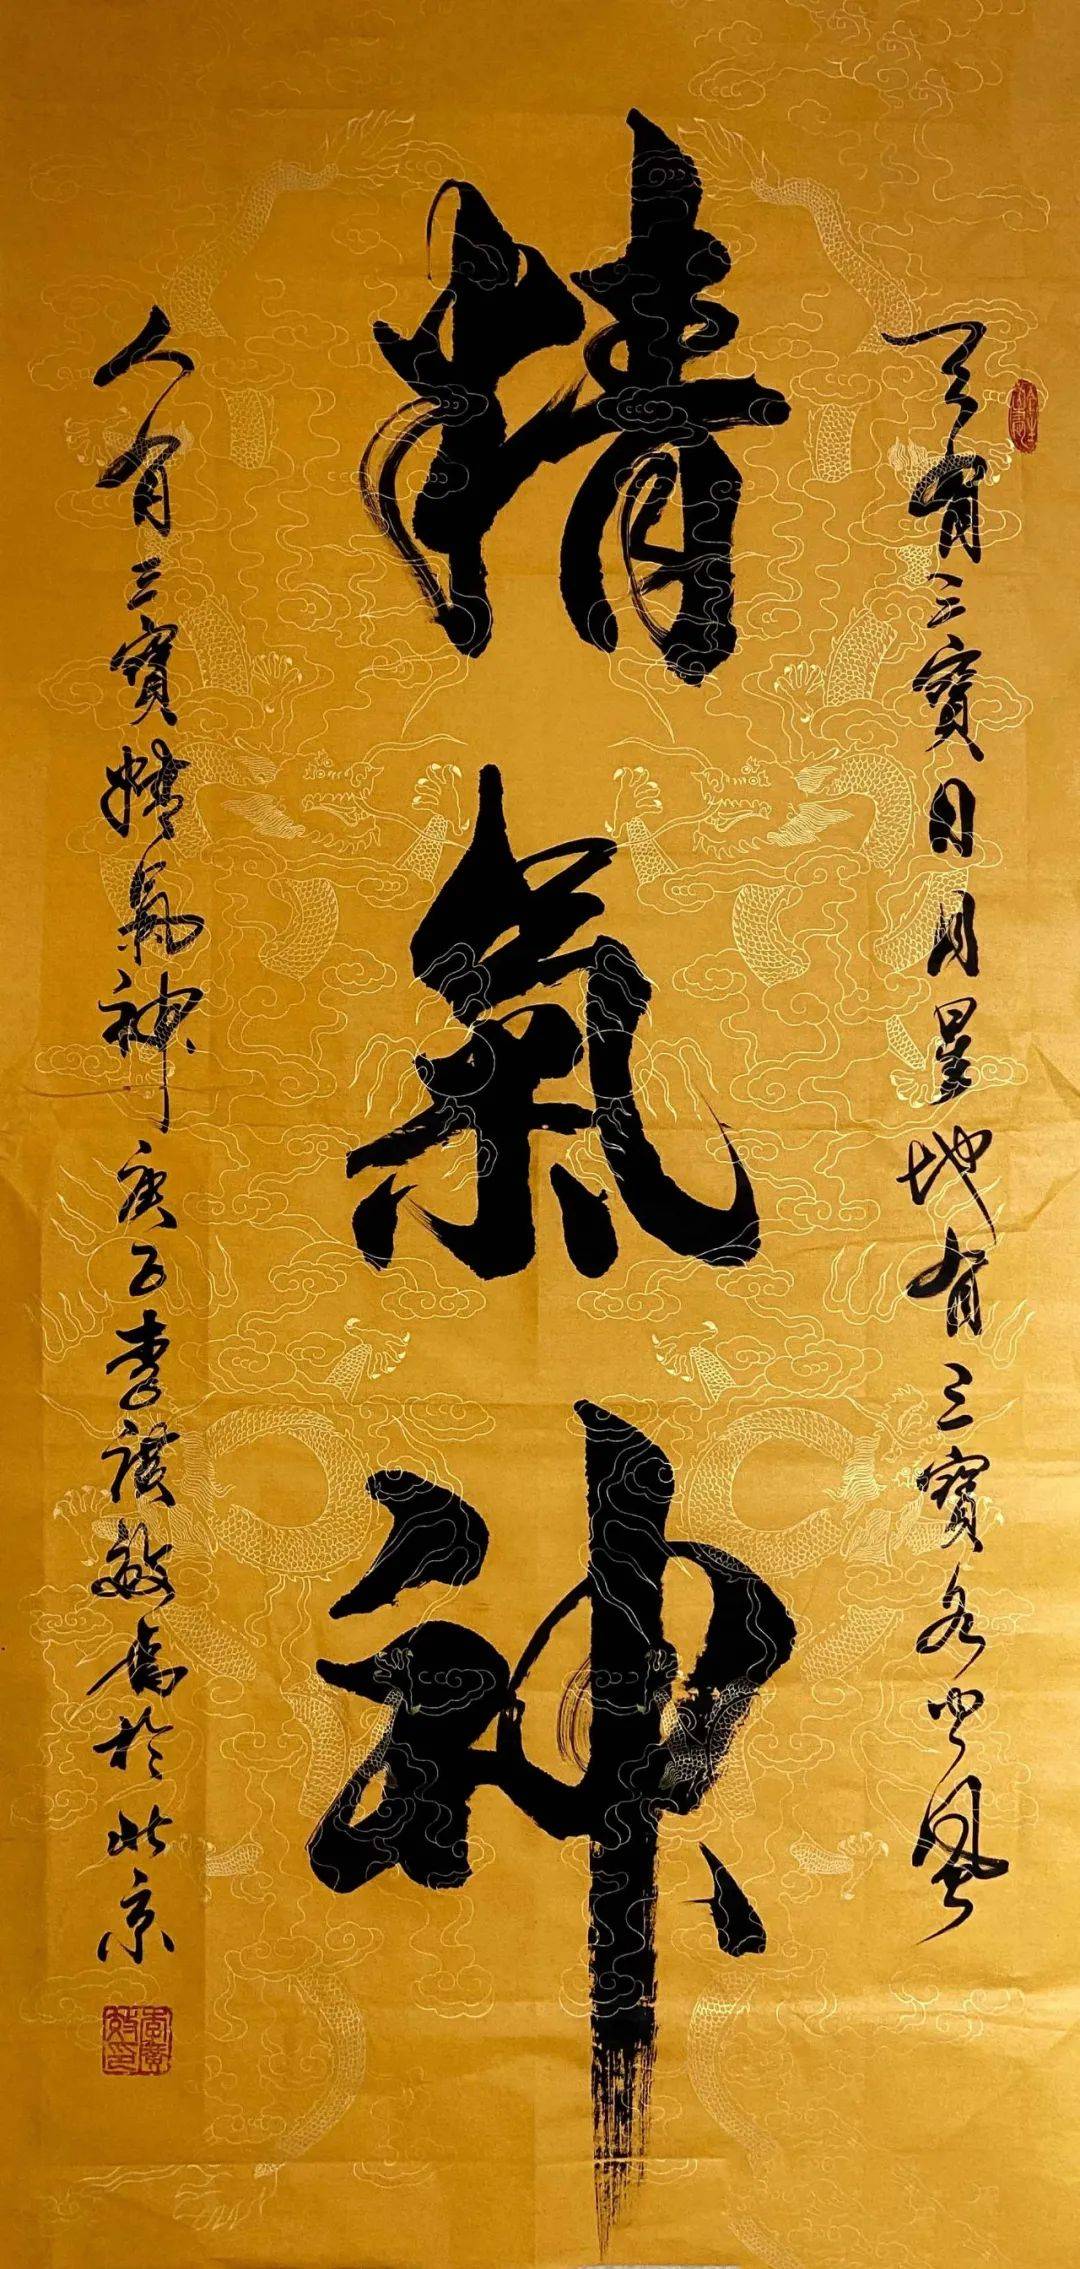 天有三寶日月星地有三寶水火風
精氣神
人有三寶精氣神庚子李敏書於北京